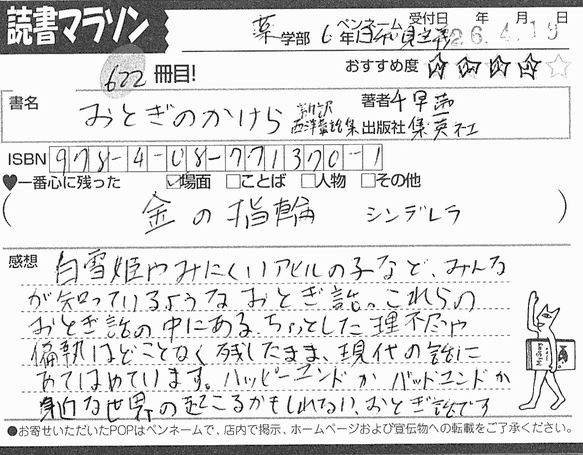 読書マラソン
薬学部 6年 ペンネーム 受付日 26.4.19 年 月 日
622冊目!
おすすめ度 ☆☆☆☆☆
書名 おとぎのかけら 新訳西洋童話集
著者 千早茜
出版社 集英社
ISBN 978-4-08-771370-1
♥一番心に残った ☑場面 □ことば □人物 □その他
(金の指輪 シンデレラ)
感想 白雪姫やみにくいアヒルの子など、みんな
が知っているようなおとぎ話。これらの
おとぎ話の中にある、ちょっとした理不尽や
偏執はどことなく残したまま、現代の話に
あてはめています。ハッピーエンドか バッドエンドか
身近な世界の起こるかもしれない、おとぎ話です
●お寄せいただいたPOPはペンネームで、店内で掲示、ホームページおよび宣伝物への転載をご了承ください。